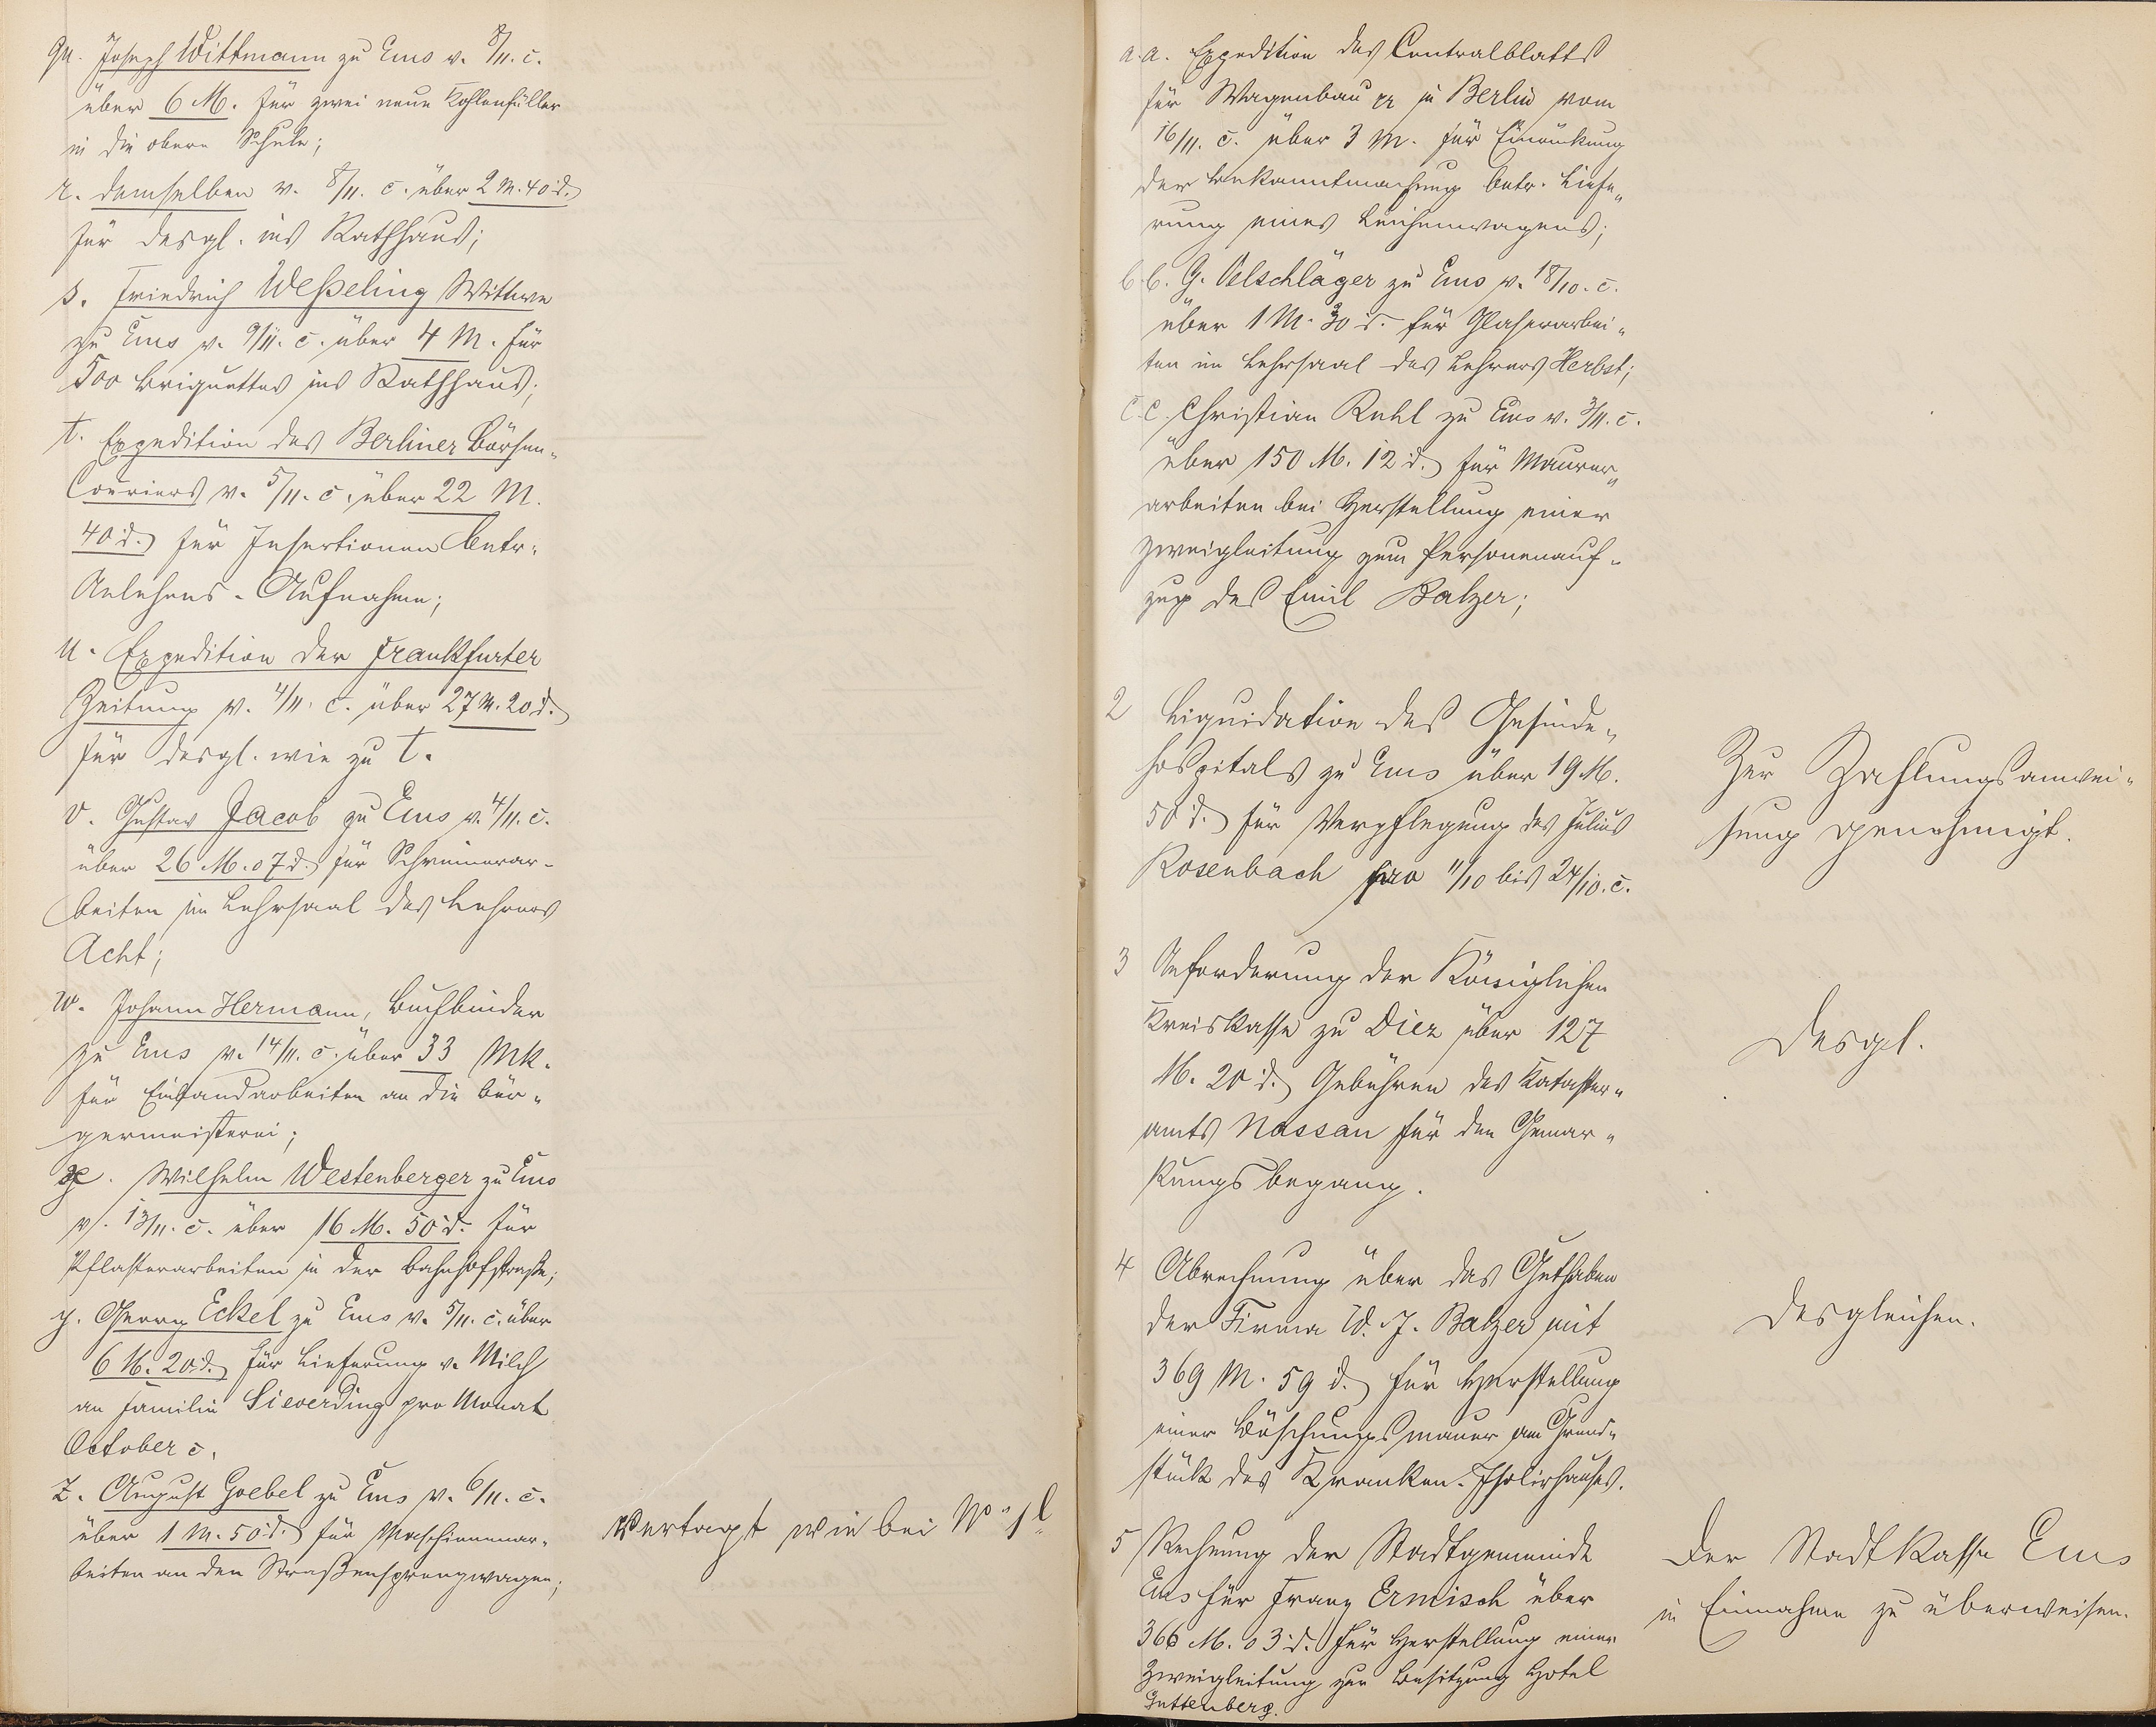 qu. Joseph Wittmann zu Ems v. 8/11. c.
über 6 M. für zwei neue Kohlenfüller
in die obere Schule;
r. demselben v. 8/11. c. über 2 M. 40 d.
für desgl. ins Rathhaus;
s. Friedrich Weßeling Wittwe
zu Ems v. 9/11. c. über 4 M. für
500 Briquettes ins Rathhaus;
t. Expedition des Berliner Börsen-
Couriers v. 5/11. c. über 22 M.
40 d. für Insertionen betr.
Anlehens-Aufnahme;
u. Expedition der Frankfurter
Zeitung v. 4/11. c. über 27 M. 20 d.
für desgl. wie zu t.
v. Gustav Jacob zu Ems v. 4/11. c.
über 26 M. 07 d. für Schreinerar-
beiten im Lehrsaal des Lehrers
Acht;
w. Johann Hermann, Buchbinder
zu Ems v. 14/11. c. über 33 Mk.
für Einbandarbeiten an die Bür-
germeisterei;
x. Wilhelm Westenberger zu Ems
v. 13/11. c. über 16 M. 50 d. für
Pflasterarbeiten in der Bahnhofstraße;
y. Georg Eckel zu Ems v. 5/11. c. über
6 M. 20 d. für Lieferung v. Milch
an Familie Sieverding pro Monat
October c.
z. August Goebel zu Ems v. 6/11. c.
über 1 M. 50 d. für Maschinenar-
beiten an den Straßensprengwagen;
Vertagt wie bei No 1 l
a.a. Expedition des Centralblatts
für Wagenbau pp in Berlin vom
16/11. c. über 3 M. für Einrückung
der Bekanntmachung betr. Liefe-
rung eines Leichenwagens;
b.b. G. Oelschläger zu Ems v. 18/10. c.
über 1 M. 30 d. für Glaserarbei-
ten im Lehrsaal des Lehrers Herbst;
c.c. Christian Ruhl zu Ems v. 3/11. c.
über 150 M. 12 d. für Maurer-
arbeiten bei Herstellung einer
Zweigleitung zum Personenauf-
zug des Emil Balzer;
2 Liquidation des Gesinde-
hospitals zu Ems über 19 M.
50 d. für Verpflegung des Julius
Rosenbach pro 11/10 bis 24/10. c.
Zur Zahlungsanwei-
sung genehmigt.
3 Anforderung der Königlichen
Kreiskasse zu Diez über 127
M. 20 d. Gebühren des Kataster-
amts Nassau für den Gemar-
kungsbegang.
desgl.
4 Abrechnung über das Guthaben
der Firma W. J. Balzer mit
369 M. 59 d. für Herstellung
einer Böschungsmauer am Grund-
stück des Kranken-Isolirhauses.
desgleichen.
5 Rechnung der Stadtgemeinde
Ems für Franz Ermisch über
366 M. 03 d. für Herstellung einer
Zweigleitung zur Besitzung Hotel
Guttenberg.
Der Stadtkasse Ems
in Einnahme zu überweisen.